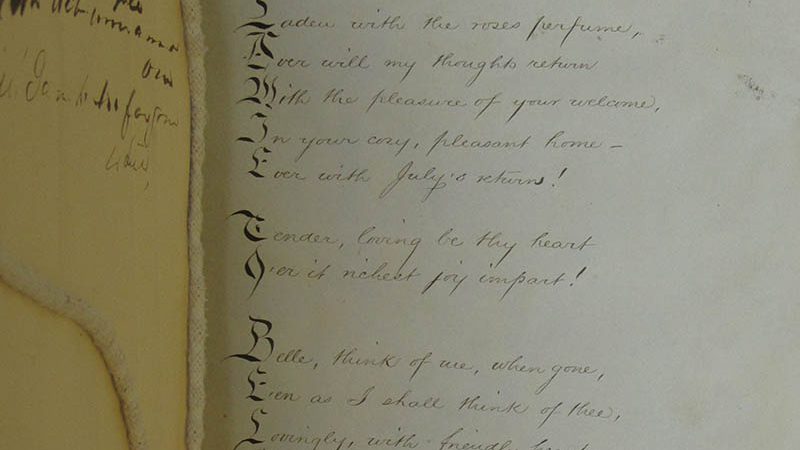 Laden with the roses perfume,
Ever will my thoughts return
With the pleasure of your welcome,
In your cosy, pleasant home –
Ever with July's return!
Tender, loving be thy heart
O'er it richest joy impart!
Belle, think of me, when gone,
Even as I shall think of thee,
Lovingly, with